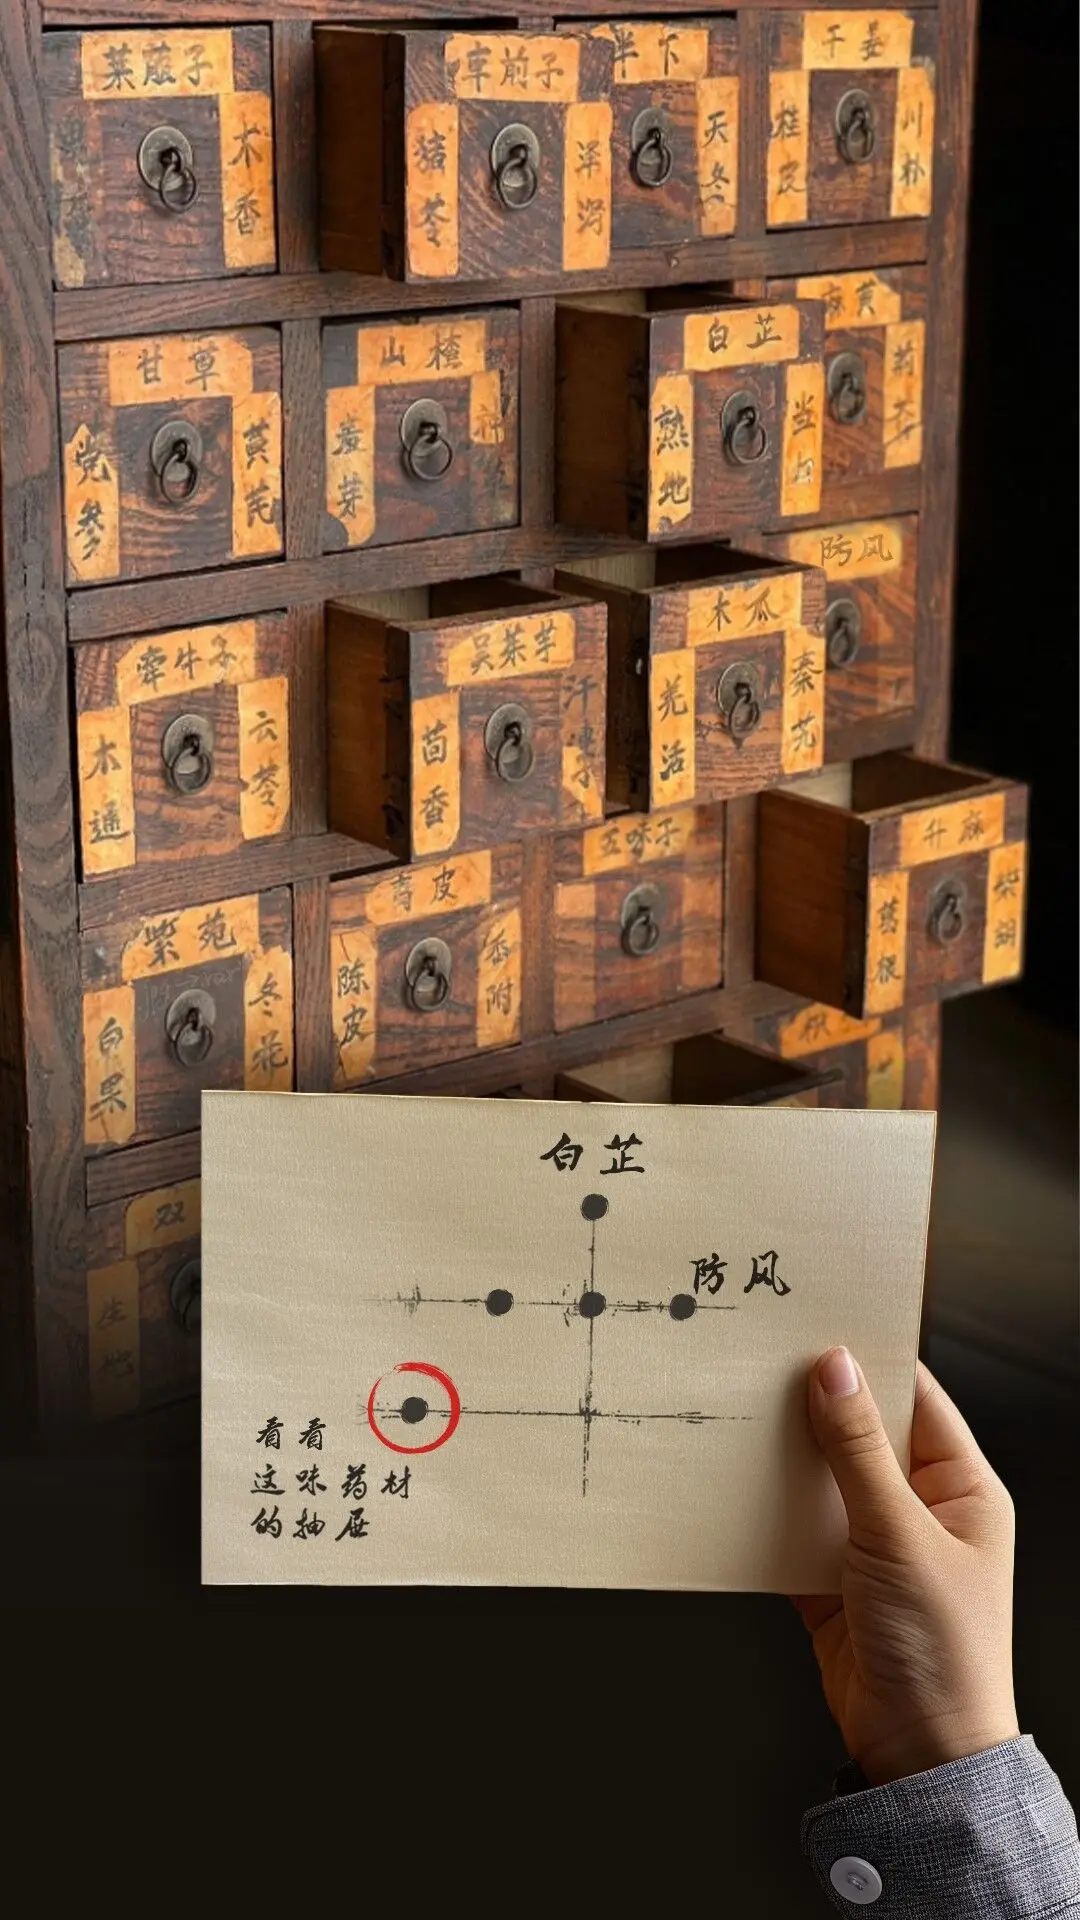 莱菔子
木香
车前子
猪苓
泽泻
半下
天冬
干姜
桂皮
川朴
甘草
党参
黄芪
山楂
麦芽
神
白芷
熟地
当归
麻黄
荊芥
牵牛子
木通
云苓
吴茱萸
茴香
木瓜
羌活
秦艽
防风
紫菀
白果
冬花
青皮
陈皮
香附
五味子
升麻
葛根
柴胡
双
白芷
防风
看看
这味药材
的抽屉